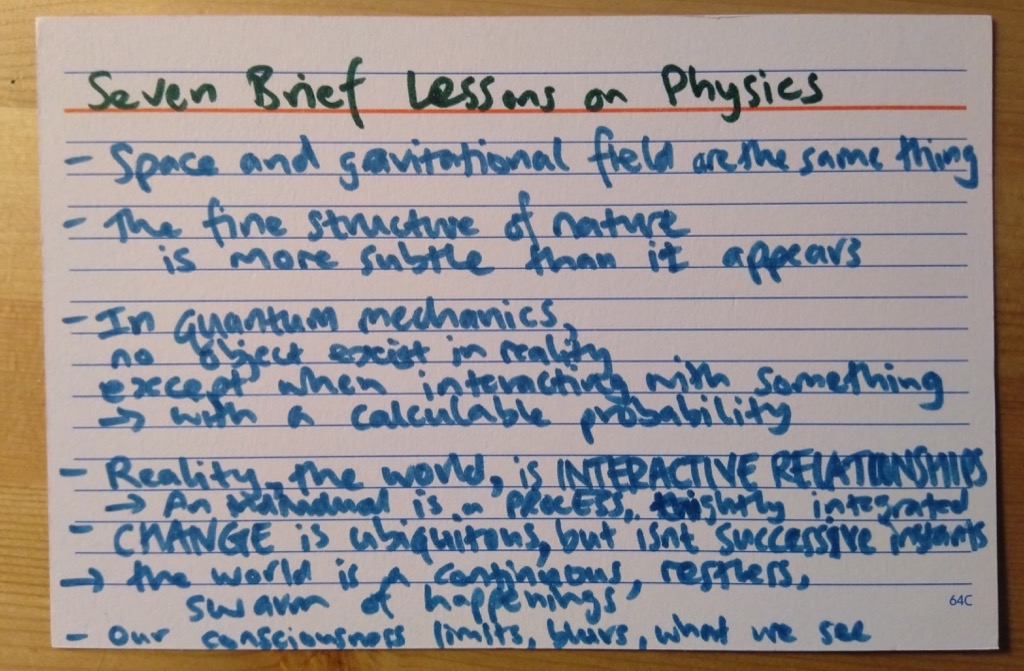 Seven Brief Lessons on Physics
- Space and gavitational field are the same thing
- The fine structure of nature
is more subtle than it appears
- In quantum mechanics,
no object exist in reality
except when interacting with something
→ with a calculable probability
- Reality, the world, is INTERACTIVE RELATIONSHIPS
→ An individual is a PROCESS, tightly integrated
- CHANGE is ubiquitous, but isnt successive instants
→ the world is a continuous, restless,
swarm of happenings
- Our consciousness limits, blurs, what we see
64C